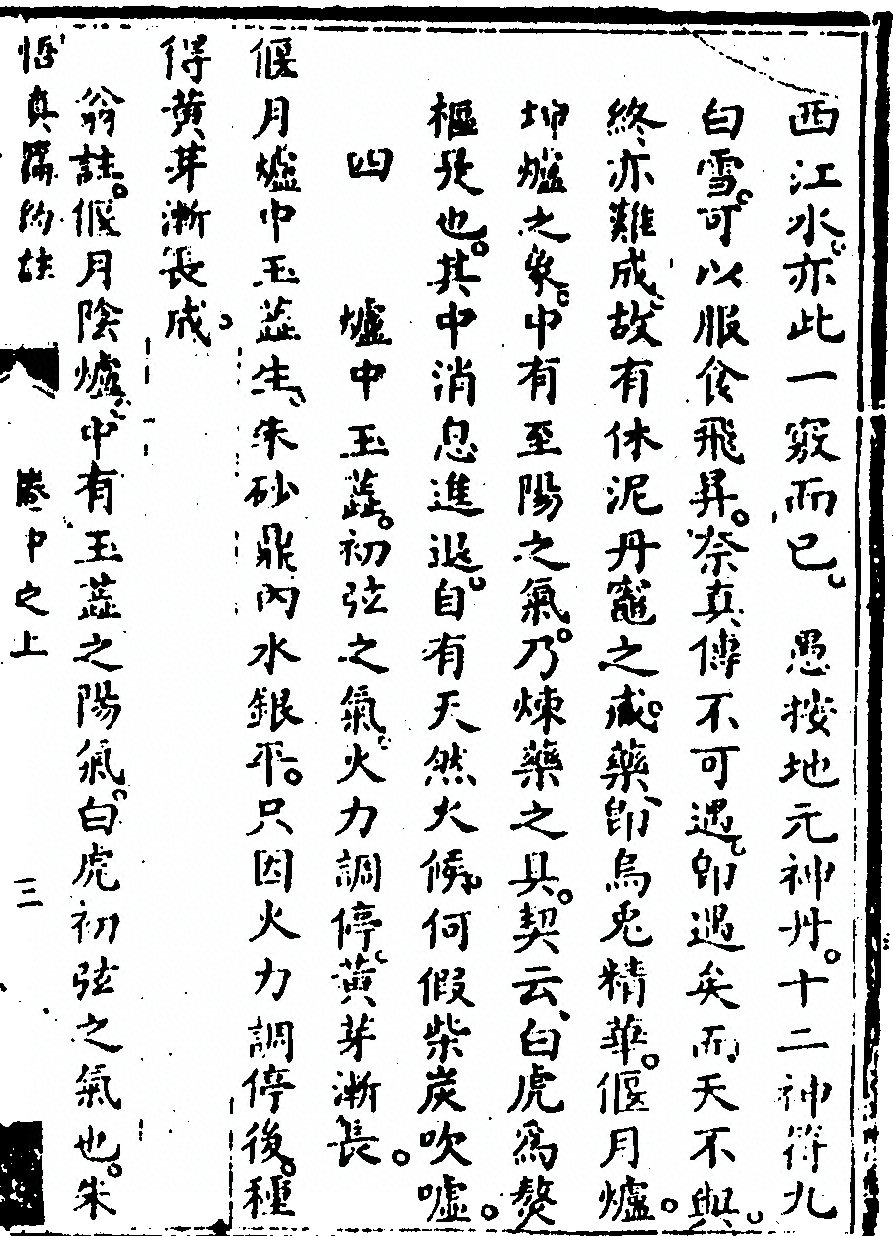 西江水亦此一竅而已。　愚按地元神丹。十二神符九
白雪。可以服食飛昇。奈真傳不可遇。卽遇矣而天不與。
終亦難成。故有休泥丹竈之戒。藥卽烏兎精華。偃月爐。
坤爐之象。中有至陽之氣。乃煉藥之具。契云、白虎爲熬
樞是也。其中消息進退。自有天然火候。何假柴炭吹噓。
四　　爐中玉蕋。初弦之氣。火力調停。黃芽漸長。
偃月爐中玉蕋生。朱砂鼎內水銀平。只因火力調停後。種
得黃芽漸長成。
翁註。偃月陰爐。中有玉蕋之陽氣。白虎初弦之氣也。朱
悟真篇約註　卷中之上　三